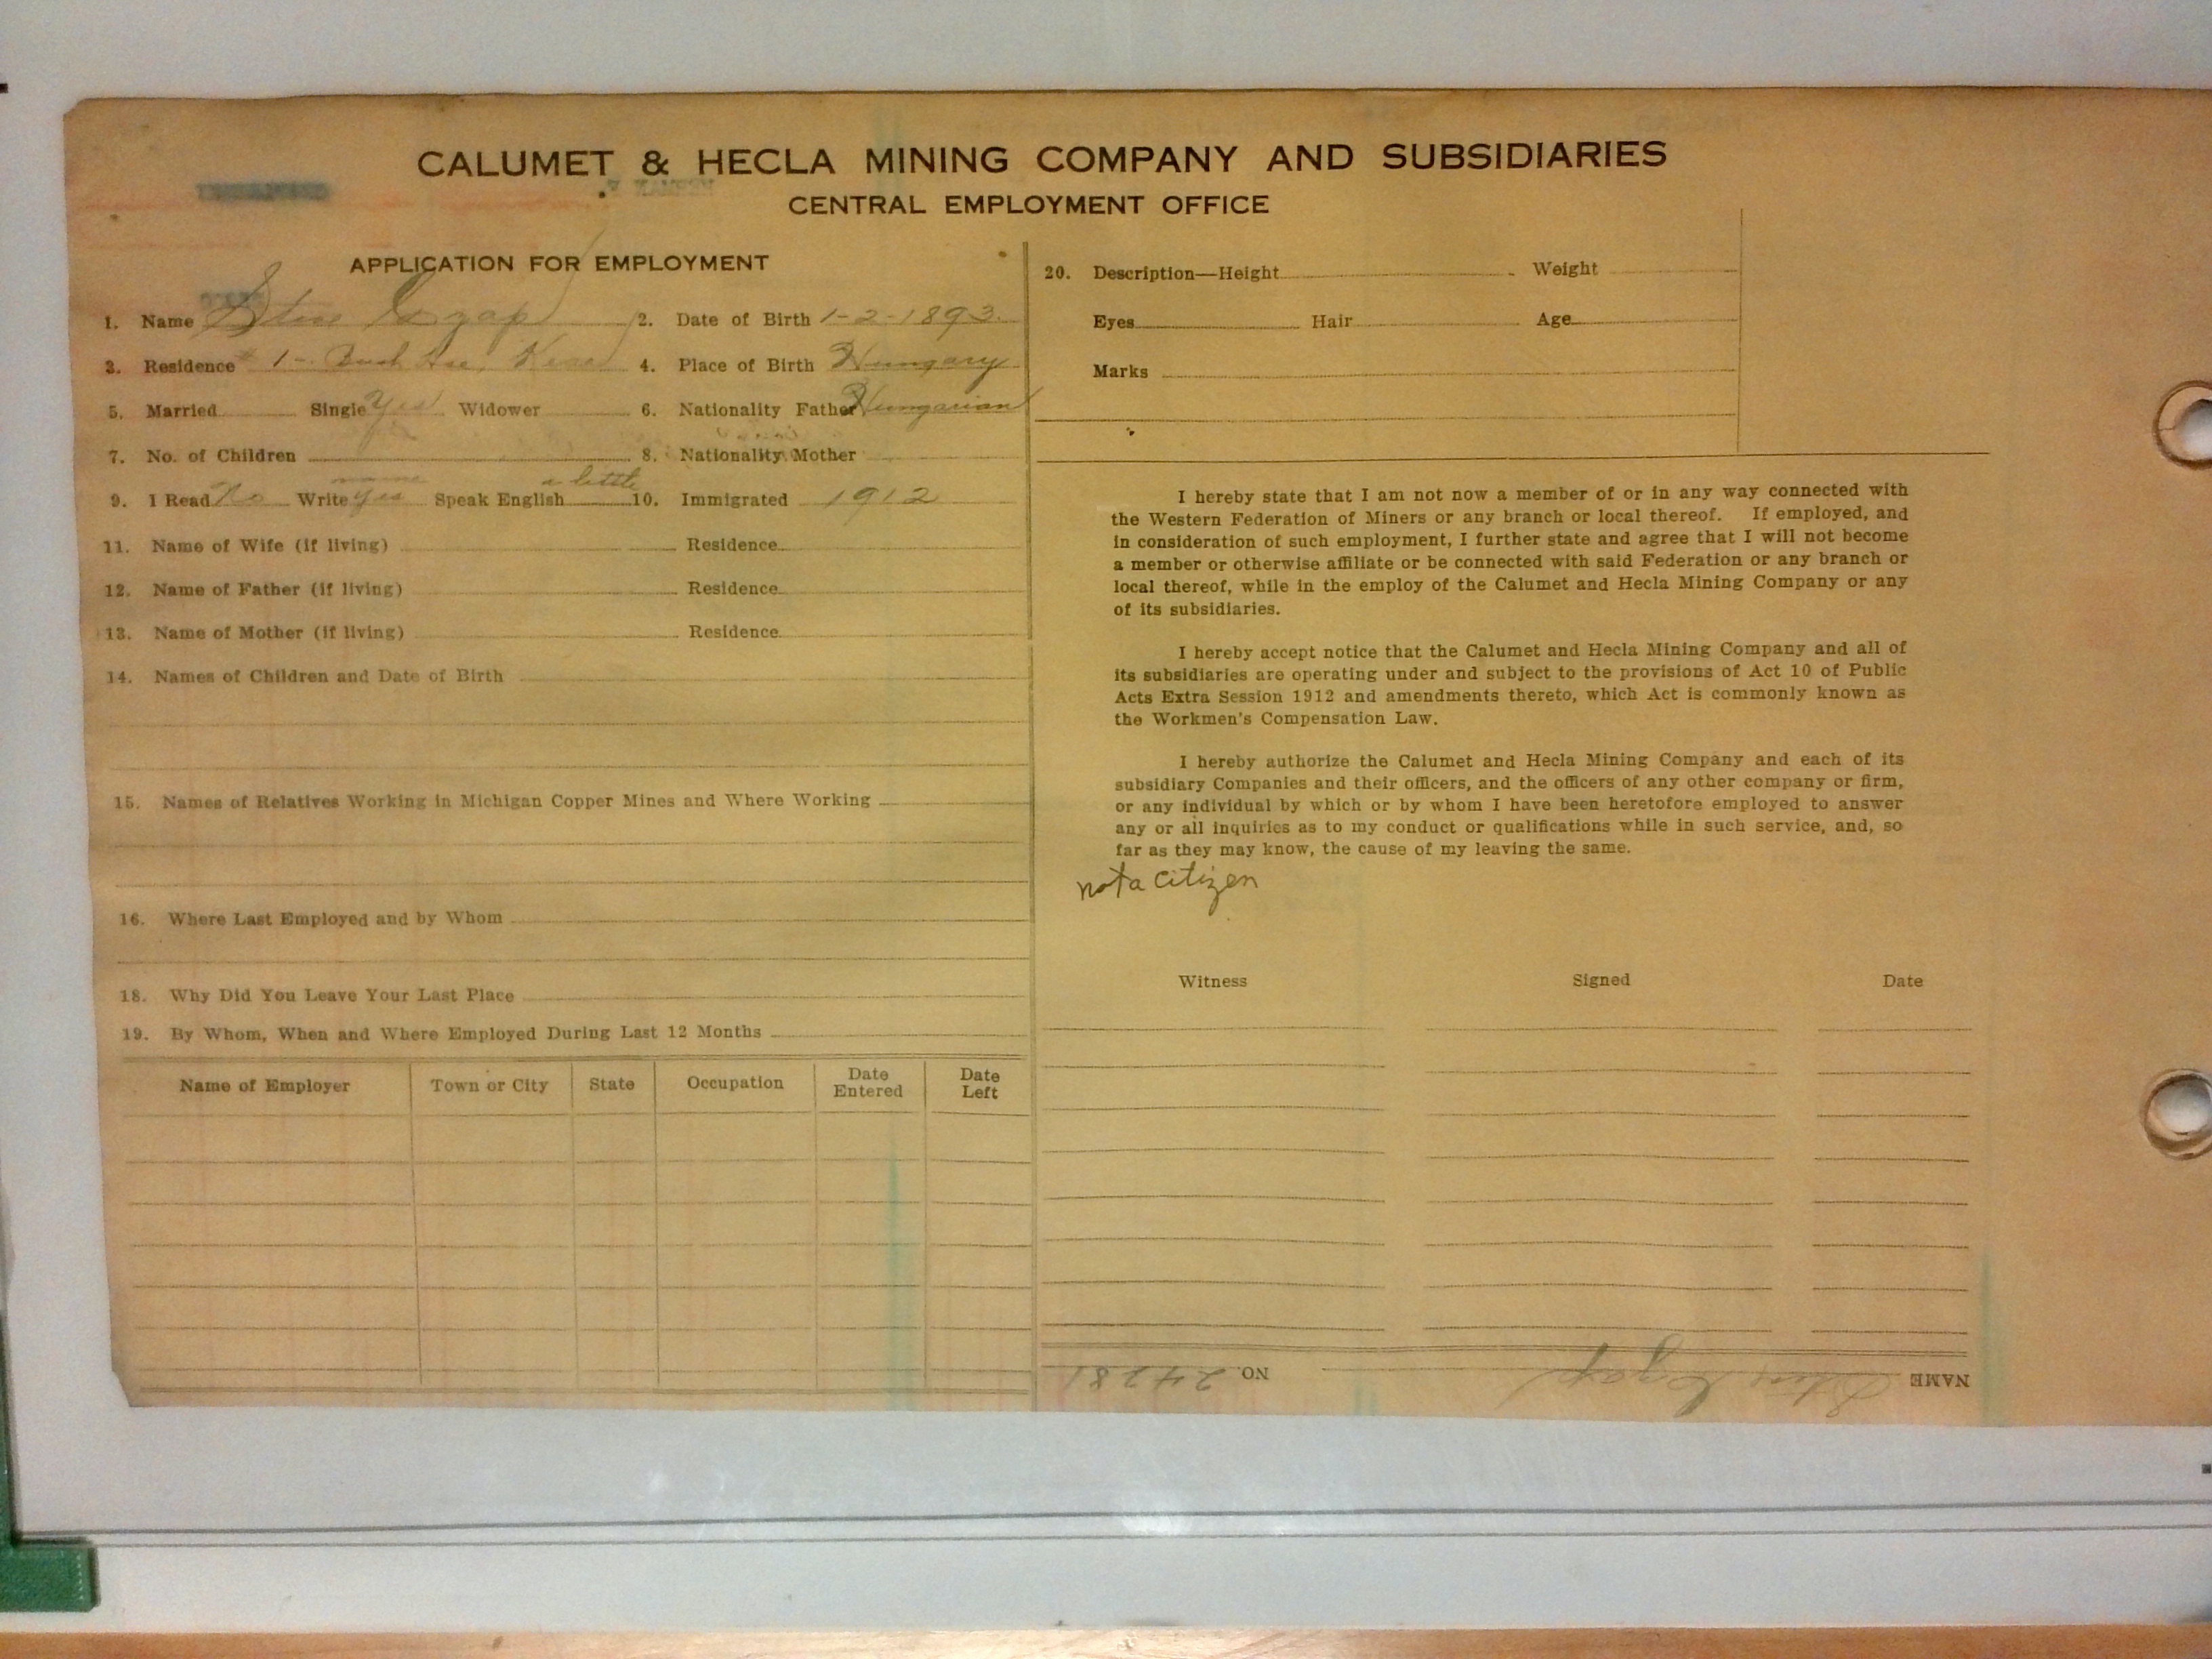 CALUMET & HECLA MINING COMPANY AND SUBSIDIARIES
CENTRAL EMPLOYMENT OFFICE
APPLICATION FOR EMPLOYMENT
1. Name Steve Czap 2. Date of Birth 1-2-1893
3. Residence # 1- 4. Place of Birth Hungary
5. Married Single Yes Widower 6. Nationality Father Hungarian
7. No. of Children 8. Nationality Mother
name a little
9. I Read No Write Yes Speak English 10. Immigrated 1912
11. Name of Wife (if living) Residence
12. Name of Father (if living) Residence
13. Name of Mother (if living) Residence
14. Names of Children and Date of Birth
15. Names of Relatives Working in Michigan Copper Mines and Where Working
16. Where Last Employed and by Whom
18. Why Did You Leave Your Last Place
19. By Whom, When and Where Employed During Last 12 Months
Name of Employer Town or City State Occupation Date Entered Date Left
20. Description—Height Weight
Eyes Hair Age
Marks
I hereby state that I am not now a member of or in any way connected with
the Western Federation of Miners or any branch or local thereof. If employed, and
in consideration of such employment, I further state and agree that I will not become
a member or otherwise affiliate or be connected with said Federation or any branch or
local thereof, while in the employ of the Calumet and Hecla Mining Company or any
of its subsidiaries.
I hereby accept notice that the Calumet and Hecla Mining Company and all of
its subsidiaries are operating under and subject to the provisions of Act 10 of Public
Acts Extra Session 1912 and amendments thereto, which Act is commonly known as
the Workmen's Compensation Law.
I hereby authorize the Calumet and Hecla Mining Company and each of its
subsidiary Companies and their officers, and the officers of any other company or firm,
or any individual by which or by whom I have been heretofore employed to answer
any or all inquiries as to my conduct or qualifications while in such service, and, so
far as they may know, the cause of my leaving the same.
not a citizen
Witness Signed Date
NAME Steve Czap NO. 24281